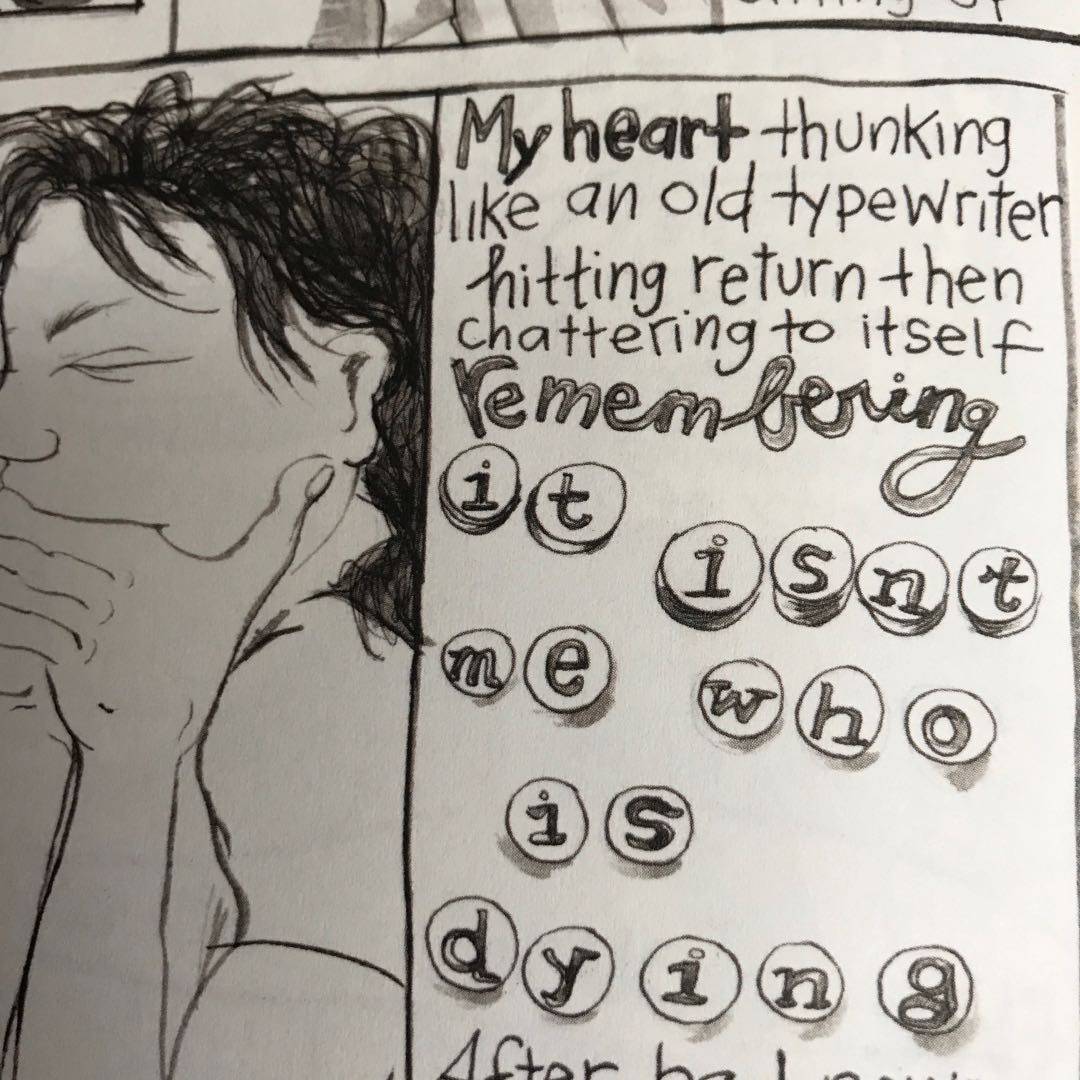 My heart thunking
like an old typewriter
hitting return then
chattering to itself
remembering
it
isnt
me who
is
dying
After he